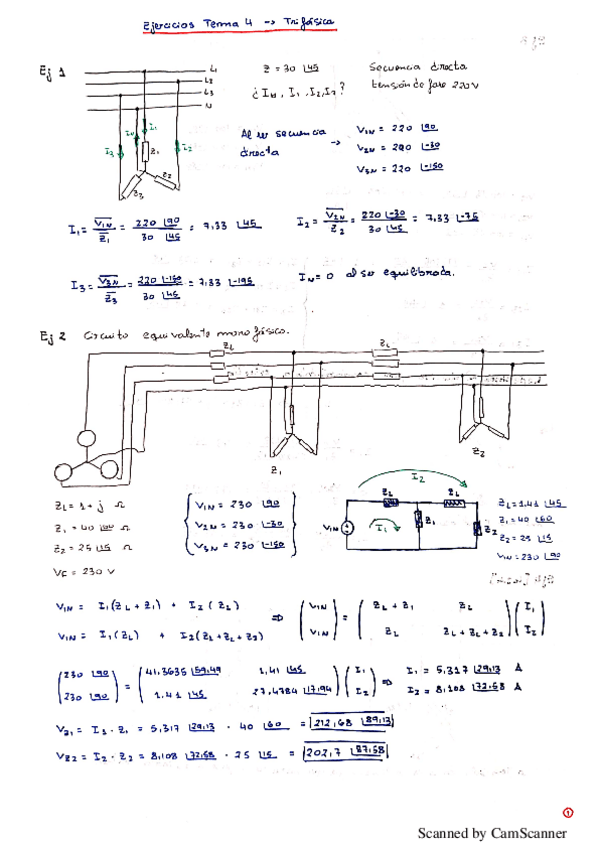 Ejercicios Tema 4 -> Trifásica
Ej 1
L1
L2
L3
N
Z = 30 ∟45
¿ IN, I1, I2, I3?
Secuencia directa
tensión de fase 220V
I3
IN
I1
I2
Z1
Z2
Z3
Al ser secuencia
directa
->
V1N = 220 ∟90
V2N = 220 ∟-30
V3N = 220 ∟-150
I1 = V1N / Z1 = 220 ∟90 / 30 ∟45 = 7,33 ∟45
I2 = V2N / Z2 = 220 ∟-30 / 30 ∟45 = 7,33 ∟-75
I3 = V3N / Z3 = 220 ∟-150 / 30 ∟45 = 7,33 ∟-195
IN = 0 al ser equilibrada.
Ej 2 Circuito equivalente monofásico.
ZL
ZL
Z1
Z2
ZL = 1 + j Ω
Z1 = 40 ∟60 Ω
Z2 = 25 ∟15 Ω
VF = 230 V
V1N = 230 ∟90
V2N = 230 ∟-30
V3N = 230 ∟-150
I2
ZL
ZL
V1N
I1
Z1
Z2
ZL = 1,41 ∟45
Z1 = 40 ∟60
Z2 = 25 ∟15
V1N = 230 ∟90
V1N = I1(ZL + Z1) + I2 (ZL)
V1N = I1(ZL) + I2(ZL+ZL+Z2)
=> (V1N V1N) = (ZL + Z1 ZL ZL ZL+ZL+Z2) (I1 I2)
(230 ∟90 230 ∟90) = (41,3635 ∟59,49 1,41 ∟45 1,41 ∟45 27,4784 ∟17,94) (I1 I2) =>
I1 = 5,317 ∟29,13 A
I2 = 8,108 ∟72,58 A
VZ1 = I1 · Z1 = 5,317 ∟29,13 · 40 ∟60 = 212,68 ∟89,13
VZ2 = I2 · Z2 = 8,108 ∟72,58 · 25 ∟15 = 202,7 ∟87,58
1
Scanned by CamScanner